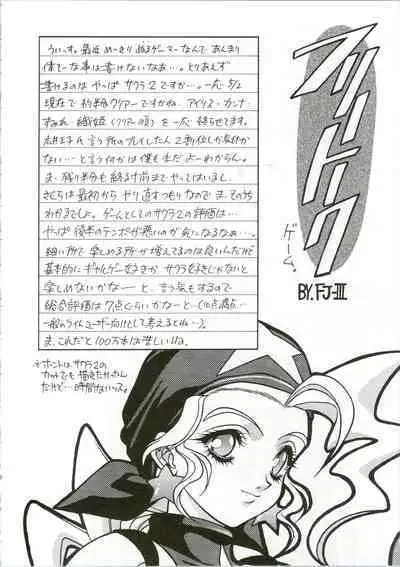 フリートークはいまし
ゲーム。
BY.FJ-III
うぃーす。最近めっきりぬるゲーマーなんで あんまり
偉そーな事は書けないなぁ…。とりあえず
書けるのは やっぱ サクラ2ですか…。一応 5/2
現在で 約半分クリアーですかね、アイリス・カンナ・
すみれ・織姫(クリアー順)を一応 終らせてます。
な事
ない…と言う何かは僕もまだ よーわからん。
ま、残り半分も 終る寸前までやってはいまし、
さくらは最初から やり直すつもりなので ま、そのうち
わかるでしょ。ゲームとしてのサクラ2の評価は…
やっぱ 後半のテンポが悪いのが気になるなぁ…。
細い所で 楽しめる所が増えてるのは良いんだけど
基本的に ギャルゲー好きか サクラ好きじゃないと
楽しめないかなー と 言う気もするので
総合評価は 7点ぐらいかなーと(10点満点…
一般のライトユーザー向けとして考えるとね…)。
ま、これだと100万本は難しいよね。
※ホントは サクラ2の
カットでも 描きたかったん
だけど…時間ないッス。